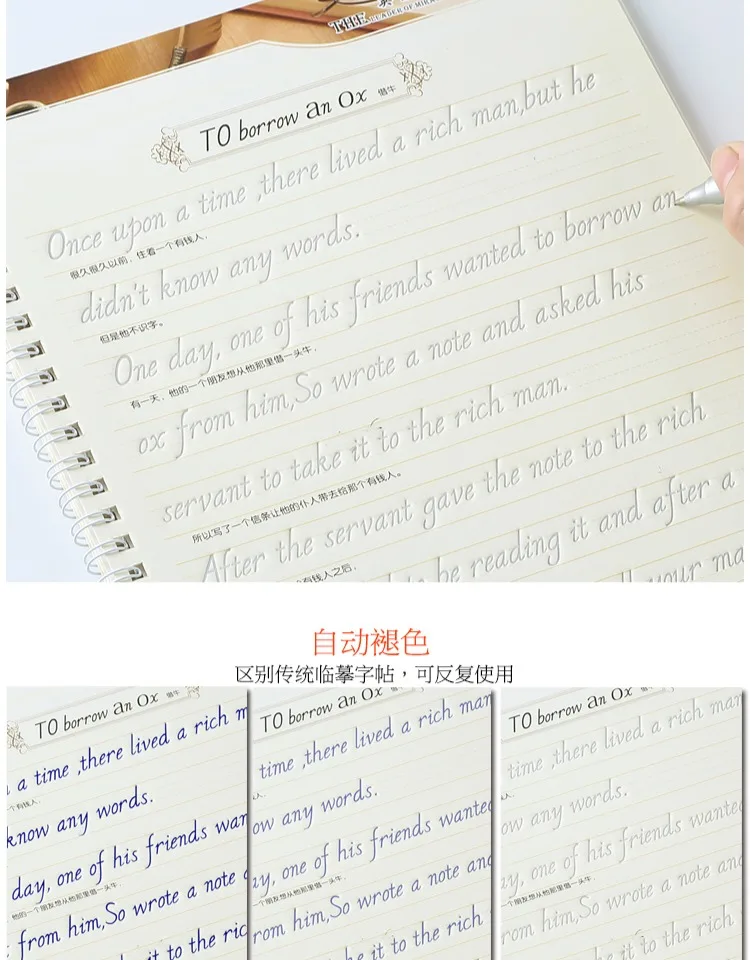 THE LEADER OF MIRA
TO borrow an Ox 借牛
Once upon a time ,there lived a rich man,but he
很久很久以前，住着一个有钱人，
didn't know any words.
但是他不识字。
One day, one of his friends wanted to borrow an
有一天，他的一个朋友想从他那里借一头牛，
ox from him,So wrote a note and asked his
servant to take it to the rich man.
所以写了一个信条让他的仆人带去给那个有钱人。
After the servant gave the note to the rich
有钱人之后，
be reading it and after a
your ma
自动褪色
区别传统临摹字帖，可反复使用
TO borrow an Ox 借牛
a time ,there lived a rich m
个有钱人，
know any words.
day, one of his friends wan
他的一个朋友想从他那里借一头牛，
from him,So wrote a note
it to the ric
TO borrow an Ox 借牛
time ,there lived a rich man
人，
ow any words.
ay, one of his friends wanted
个朋友想从他那里借一头牛，
rom him,So wrote a note and
e it to the rich
TO borrow an Ox 借牛
time ,there lived a rich man
人，
ow any words.
ay, one of his friends wanted
个朋友想从他那里借一头牛，
rom him,So wrote a note and
e it to the rich